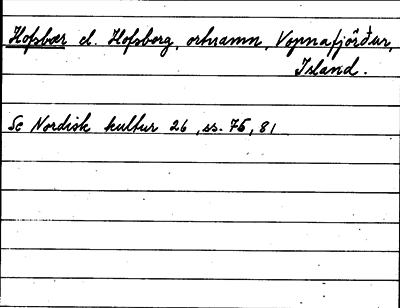 Hofsbær el. Hofsborg, ortnamn, Vopnafjörður,
Island.
Se Nordisk kultur 26, ss. 75, 81